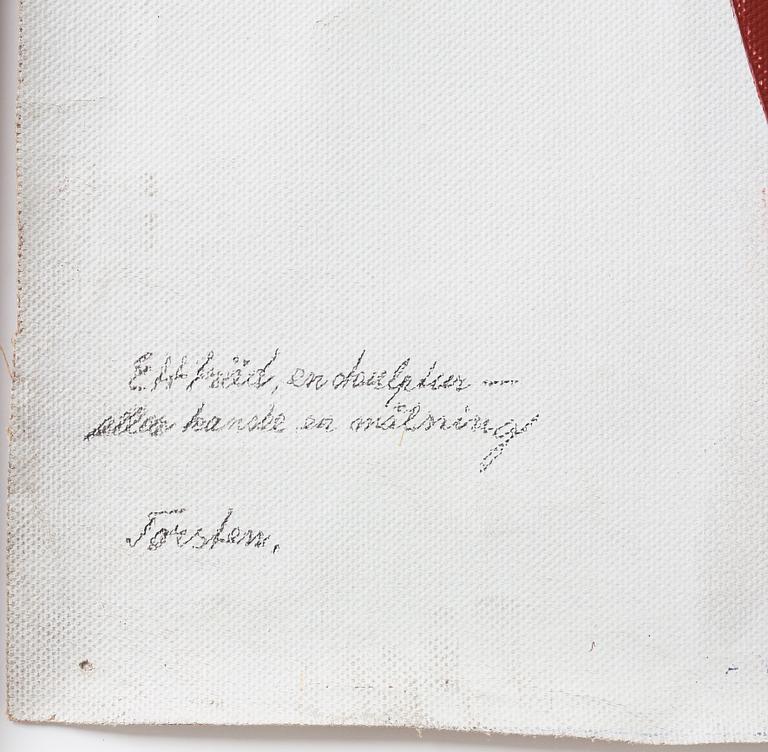 Ett träd, en skulptur —
eller kanske en målning
Torsten.